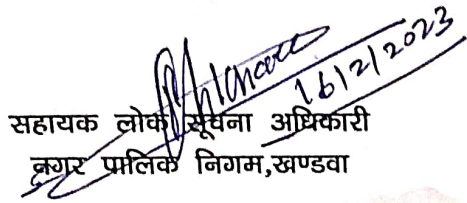 16/2/2023
सहायक लोक सूचना अधिकारी
नगर पालिक निगम,खण्डवा